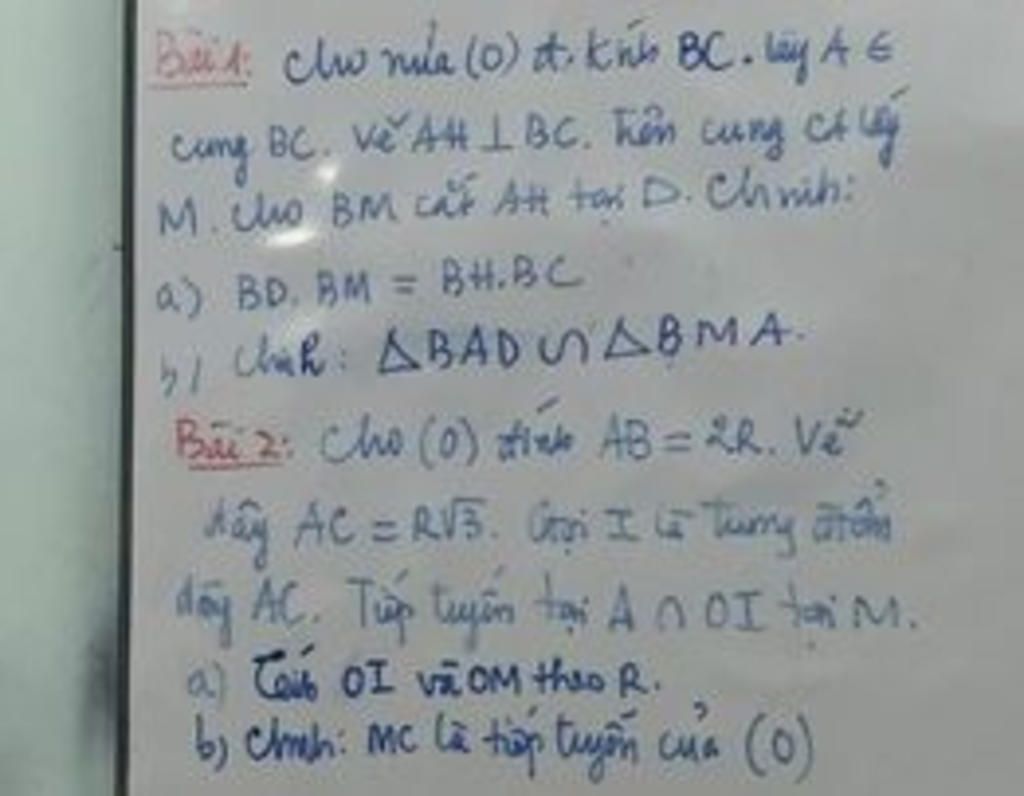 Bài 1: Cho nửa (O) đ. kính BC. lấy A ∈
cung BC. Vẽ AH ⊥ BC. Trên cung CA lấy
M. Cho BM cắt AH tại D. Chminh:
a) BD. BM = BH.BC
b) Cminh: △BAD ∽ △BMA.
Bài 2: Cho (O) đkính AB = 2R. Vẽ
dây AC = R√3. Gọi I là trung điểm
dây AC. Tiếp tuyến tại A ∩ OI tại M.
a) Tính OI và OM theo R.
b) Cminh: MC là tiếp tuyến của (O)